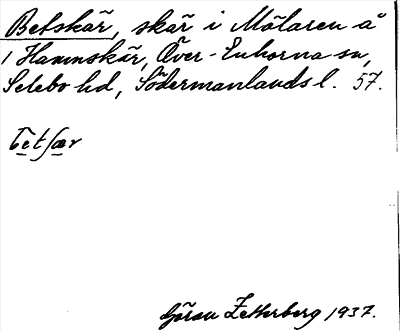 Betskär, skär i Mälaren å
1 Hamnskär, Över-Enhorna sn,
Selebo hd, Södermanlands l. 57.
be̱tʃæ̱r
Göran Zetterberg 1937.